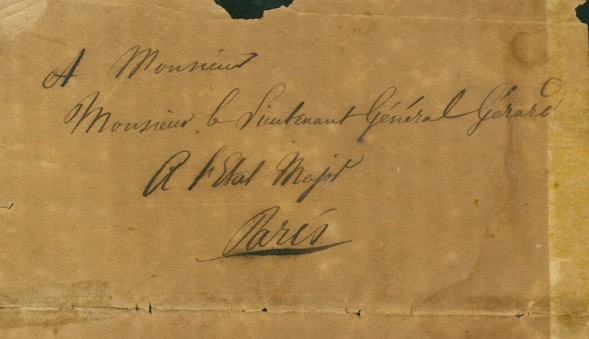 A Monsieur
Monsieur le Lieutenant Général Gérard
A l'Etat Major
Paris